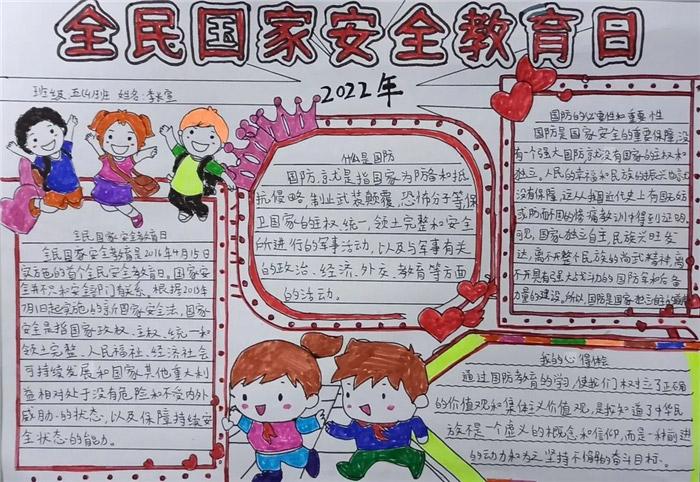 全民国家安全教育日
班级:五(4)班 姓名:李长宣
2022年
全民国家安全教育日
全民国家安全教育是2016年4月15日
实施的首个全民安全教育日。国家安
全并不只和安全部门有关系。根据2015年
7月1日起实施的新国家安全法,国家
安全是指国家政权、主权、统一和
领土完整、人民福祉、经济社会
可持续发展和国家其他重大利
益相对处于没有危险和不受内外
威胁的状态,以及保障持续安
全状态的能力。
什么是国防
国防,就是指国家为防备和抵
抗侵略,制止武装颠覆,恐怖分子等,保
卫国家的主权,统一,领土完整和安全
所进行的军事活动,以及与军事有关
的政治、经济、外交、教育等方面
的活动。
国防的必要性和重要性
国防是国家安全的重要保障,没
有个强大国防就没有国家的主权和
独立。人民的幸福和民族的振兴也就
没有保障,这从我国近代史上有国无防
或防而不固的惨痛教训中得到证明
可见,国家独立自主,民族兴旺发
达,离不开整个民族的尚武精神,离
不开具有强大战斗力的国防军和后备
力量的建设。所以,国防是国家独立自主的
我的心得体会
通过国防教育的学习,使我们树立了正确
的价值观和集体主义价值观,是我知道了中华民
族不是一个虚义的概念和信仰,而是一种前进
的动力和为之坚持不懈的奋斗目标。